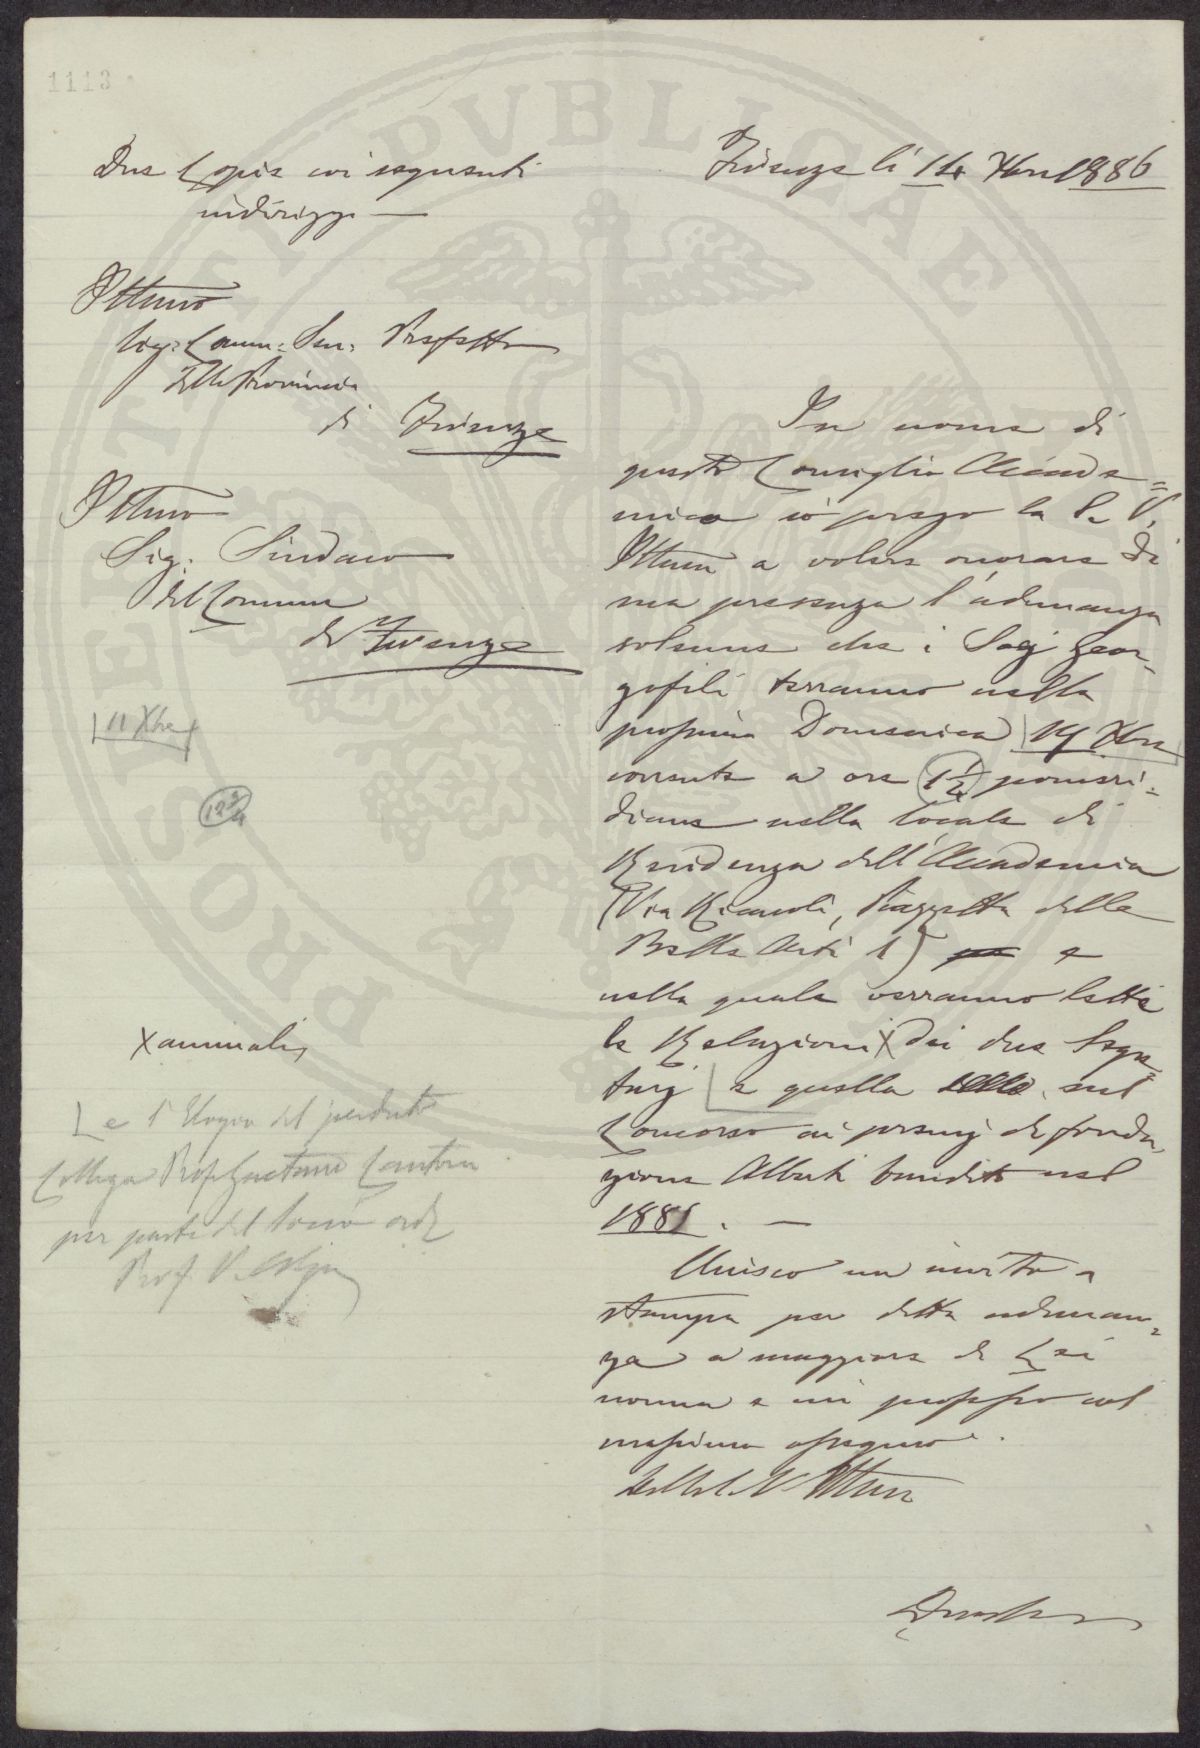 1113
PROSPERITATI PUBLICAE
Due Copie coi seguenti
indirizzi —
Firenze li 14 Xbre 1886
Illmo
Sig: Comm: Sen: Prefetto
della Provincia
di Firenze
Illmo
Sig: Sindaco
del Comune
di Firenze
11 Xbre
12 3/4
X annuali
e l'Elogio del perduto
Collega Prof Gaetano Cantoni
per parte del Socio ord
Prof. V.
In nome di
questo Consiglio Accade=
mico io prego la S. V.
Illma a volere onorare di
sua presenza l'adunanza
solenne che i Socj Geor-
gofili terranno nella
prossima Domenica 19 Xbre
corrente a ore 1 1/2 pomeri=
diane nella locale di
Residenza dell'Accademia
(Via Ricasoli, Piazzetta delle
Belle Arti 1) e
nella quale verranno lette
le Relazioni X dei due Segre=
tarj e quella sul
Concorso ai premj di fonda,
zione Alberti bandito nel
1881. —
Unisco un invito a
stampa per detta adunan=
za a maggiore di Lei
norma e mi professo col
massimo ossequio.
Della S. V. Illma